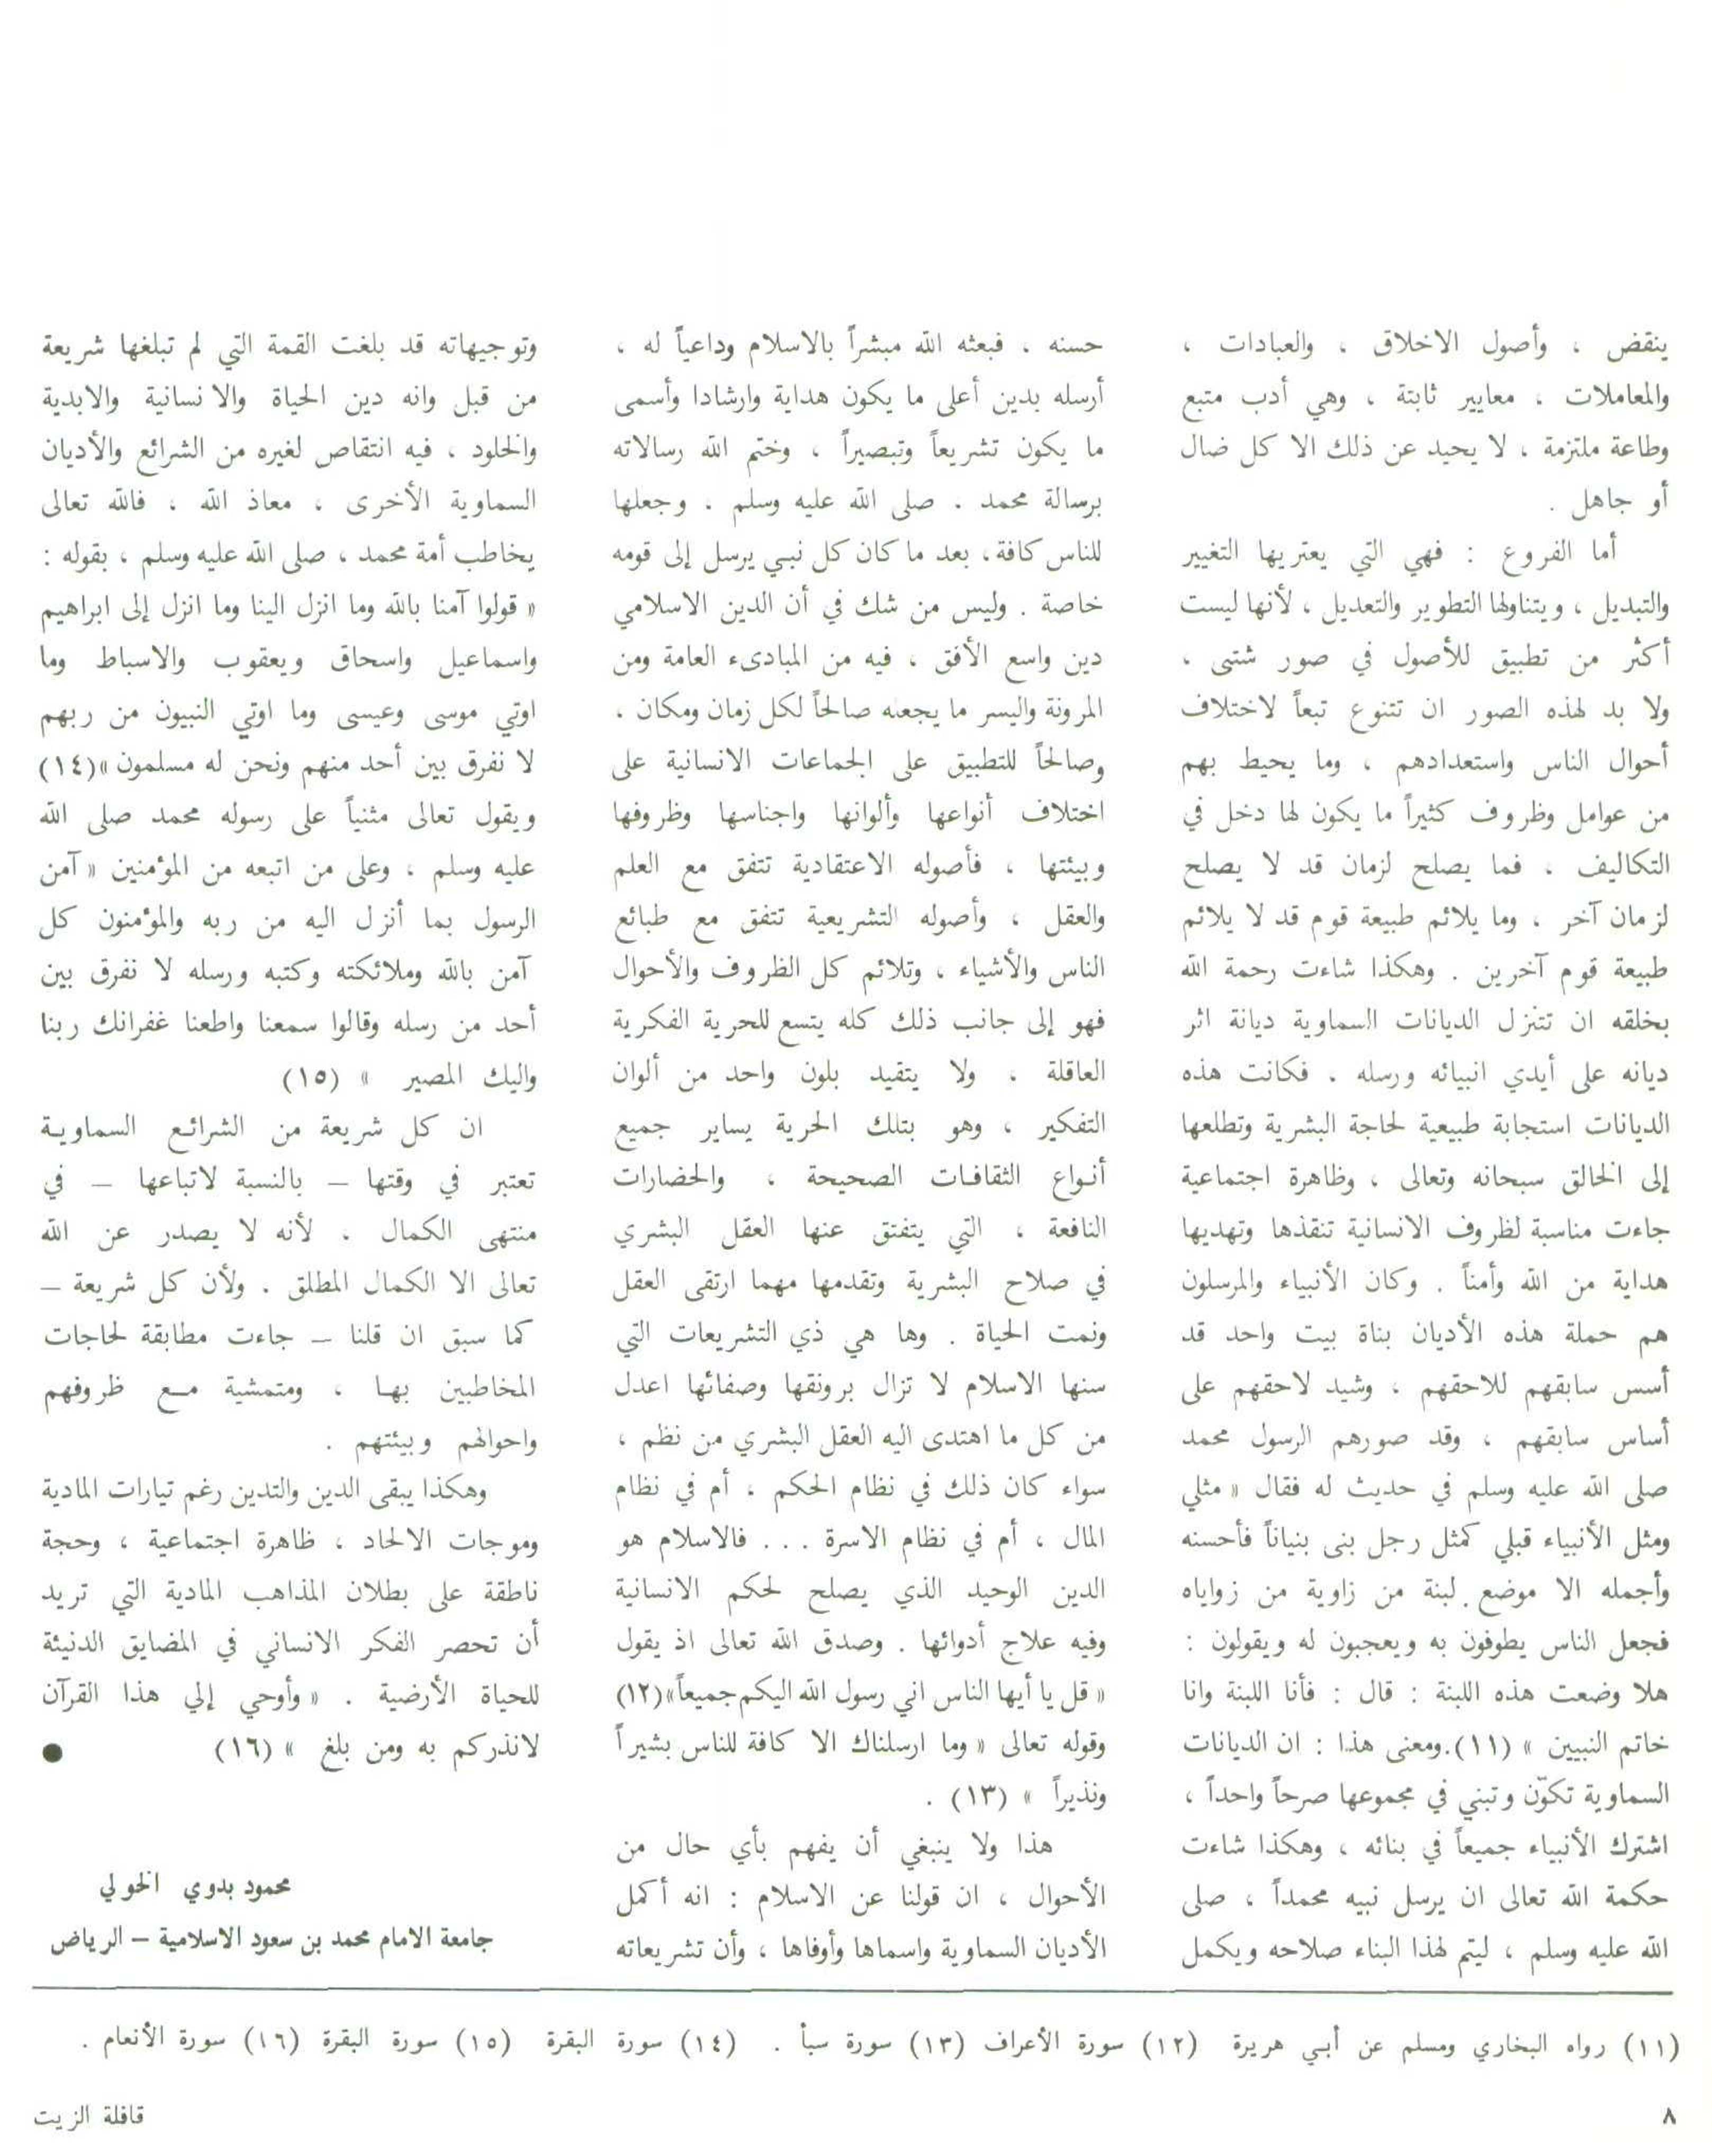 ينقض ، وأصول الاخلاق ، والعبادات ،
والمعاملات ، معايير ثابتة ، وهي أدب متبع
وطاعة ملتزمة ، لا يحيد عن ذلك الا كل ضال
أو جاهل .
أما الفروع : فهي التي يعتريها التغيير
والتبديل ، ويتناولها التطوير والتعديل ، لأنها ليست
أكثر من تطبيق للأصول في صور شتى ،
ولا بد لهذه الصور ان تتنوع تبعاً لاختلاف
أحوال الناس واستعدادهم ، وما يحيط بهم
من عوامل وظروف كثيراً ما يكون لها دخل في
التكاليف ، فما يصلح لزمان قد لا يصلح
لزمان آخر ، وما يلائم طبيعة قوم قد لا يلائم
طبيعة قوم آخرين . وهكذا شاءت رحمة الله
بخلقه ان تتنزل الديانات السماوية ديانة اثر
ديانه على أيدي انبيائه ورسله . فكانت هذه
الديانات استجابة طبيعية لحاجة البشرية وتطلعها
إلى الخالق سبحانه وتعالى ، وظاهرة اجتماعية
جاءت مناسبة لظروف الانسانية تنقذها وتهديها
هداية من الله وأمناً . وكان الأنبياء والمرسلون
هم حملة هذه الأديان بناة بيت واحد قد
أسس سابقهم للاحقهم ، وشيد لاحقهم على
أساس سابقهم ، وقد صورهم الرسول محمد
صلى الله عليه وسلم في حديث له فقال « مثلي
ومثل الأنبياء قبلي كمثل رجل بنى بنياناً فأحسنه
وأجمله الا موضع لبنة من زاوية من زواياه
فجعل الناس يطوفون به ويعجبون له ويقولون :
هلا وضعت هذه اللبنة : قال : فأنا اللبنة وانا
خاتم النبيين » (١١).ومعنى هذا : ان الديانات
السماوية تكوّن وتبني في مجموعها صرحاً واحداً ،
اشترك الأنبياء جميعاً في بنائه ، وهكذا شاءت
حكمة الله تعالى ان يرسل نبيه محمداً ، صلى
الله عليه وسلم ، ليتم لهذا البناء صلاحه ويكمل
حسنه ، فبعثه الله مبشراً بالاسلام وداعياً له ،
أرسله بدين أعلى ما يكون هداية وارشادا وأسمى
ما يكون تشريعاً وتبصيراً ، وختم الله رسالاته
برسالة محمد . صلى الله عليه وسلم . وجعلها
للناس كافة ، بعد ما كان كل نبي يرسل إلى قومه
خاصة . وليس من شك في أن الدين الاسلامي
دين واسع الأفق ، فيه من المبادىء العامة ومن
المرونة واليسر ما يجعله صالحاً لكل زمان ومكان ،
وصالحاً للتطبيق على الجماعات الانسانية على
اختلاف أنواعها وألوانها واجناسها وظروفها
وبيئتها ، فأصوله الاعتقادية تتفق مع العلم
والعقل ، وأصوله التشريعية تتفق مع طبائع
الناس والأشياء ، وتلائم كل الظروف والأحوال
فهو إلى جانب ذلك كله يتسع للحرية الفكرية
العاقلة ، ولا يتقيد بلون واحد من ألوان
التفكير ، وهو بتلك الحرية يساير جميع
أنواع الثقافات الصحيحة ، والحضارات
النافعة ، التي يتفتق عنها العقل البشري
في صلاح البشرية وتقدمها مهما ارتقى العقل
ونمت الحياة . وها هي ذي التشريعات التي
سنها الاسلام لا تزال برونقها وصفائها اعدل
من كل ما اهتدى اليه العقل البشري من نظم ،
سواء كان ذلك في نظام الحكم ، أم في نظام
المال ، أم في نظام الاسرة . . . فالاسلام هو
الدين الوحيد الذي يصلح لحكم الانسانية
وفيه علاج أدوائها . وصدق الله تعالى اذ يقول
« قل يا أيها الناس اني رسول الله اليكم جميعاً»(١٢)
وقوله تعالى « وما ارسلناك الا كافة للناس بشيراً
ونذيراً » (١٣) .
هذا ولا ينبغي أن يفهم بأي حال من
الأحوال ، ان قولنا عن الاسلام : انه أكمل
الأديان السماوية واسماها وأوفاها ، وأن تشريعاته
وتوجيهاته قد بلغت القمة التي لم تبلغها شريعة
من قبل وانه دين الحياة والانسانية والابدية
والخلود ، فيه انتقاص لغيره من الشرائع والأديان
السماوية الأخرى ، معاذ الله ، فالله تعالى
يخاطب أمة محمد ، صلى الله عليه وسلم ، بقوله :
« قولوا آمنا بالله وما انزل الينا وما انزل إلى ابراهيم
واسماعيل واسحاق ويعقوب والاسباط وما
اوتي موسى وعيسى وما اوتي النبيون من ربهم
لا نفرق بين أحد منهم ونحن له مسلمون »(١٤)
ويقول تعالى مثنياً على رسوله محمد صلى الله
عليه وسلم ، وعلى من اتبعه من المؤمنين « آمن
الرسول بما أنزل اليه من ربه والمؤمنون كل
آمن بالله وملائكته وكتبه ورسله لا نفرق بين
أحد من رسله وقالوا سمعنا واطعنا غفرانك ربنا
واليك المصير » (١٥)
ان كل شريعة من الشرائع السماوية
تعتبر في وقتها — بالنسبة لاتباعها — في
منتهى الكمال ، لأنه لا يصدر عن الله
تعالى الا الكمال المطلق . ولأن كل شريعة —
كما سبق ان قلنا — جاءت مطابقة لحاجات
المخاطبين بها ، ومتمشية مع ظروفهم
واحوالهم وبيئتهم .
وهكذا يبقى الدين والتدين رغم تيارات المادية
وموجات الالحاد ، ظاهرة اجتماعية ، وحجة
ناطقة على بطلان المذاهب المادية التي تريد
أن تحصر الفكر الانساني في المضايق الدنيئة
للحياة الأرضية . « وأوحي إلي هذا القرآن
لانذركم به ومن بلغ » (١٦) ●
محمود بدوي الخولي
جامعة الامام محمد بن سعود الاسلامية – الرياض
(١١) رواه البخاري ومسلم عن أبي هريرة (١٢) سورة الأعراف (١٣) سورة سبأ . (١٤) سورة البقرة (١٥) سورة البقرة (١٦) سورة الأنعام .
٨
قافلة الزيت